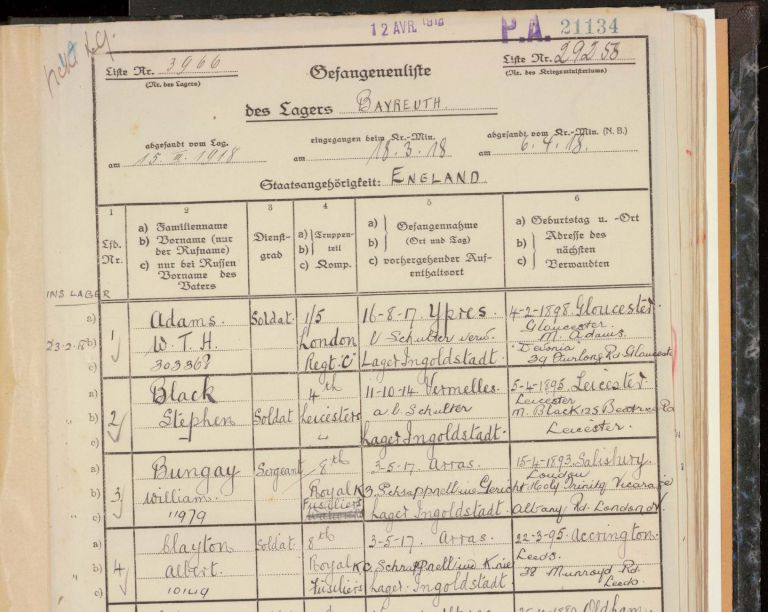 12 AVR. 1918
P.A. 21134
Liste Nr. 3966
(Nr. des Lagers)
Gefangenenliste
Liste Nr. 29253
(Nr. des Kriegsministeriums)
des Lagers BAYREUTH
abgesandt vom Lag.
am 15. III. 1918
eingegangen beim Kr.-Min.
am 18.3.18
abgesandt vom Kr.-Min. (N. B.)
am 6.4.18.
Staatsangehörigkeit: ENGLAND.
1
Lfd. Nr.
2
a) Familienname
b) Vorname (nur der Rufname)
c) nur bei Russen Vorname des Vaters
3
Dienst-
grad
4
a) Truppen-
b) teil
c) Komp.
5
a) Gefangennahme
b) (Ort und Tag)
c) vorhergehender Auf-
enthaltsort
6
a) Geburtstag u. -Ort
b) Adresse des
c) nächsten
Verwandten
INS LAGER
23-2-18
a)
b)
c)
1
Adams.
W. T. H.
303368
Soldat
1/5
London
Regt. "C"
16-8-17. Ypres.
Schulter verw.
Lager Ingolstadt.
4-2-1898. Gloucester.
Gloucester.
M. Adams.
"Devonia"
39 Furlong Rd. Gloucester
a)
b)
c)
2
Black
Stephen
Soldat
4th
Leicesters
"
11-10-14. Vermelles.
Schulter
Lager Ingolstadt.
5-4-1895. Leicester
Leicester
M. Black 125 Beatrice Rd
Leicester.
a)
b)
c)
3
Bungay
William.
11979
Sergeant
8th
Royal
Fusiliers
3-5-17. Arras.
Lager Ingolstadt.
15-4-1893. Salisbury.
London
Holy Trinity Vicarage
Albany Rd. London N.
a)
b)
c)
4
Clayton
Albert.
10149
Soldat.
8th
Royal
Fusiliers
3-5-17. Arras.
Lager Ingolstadt
22-3-95. Accrington.
Leeds.
38 Munroyd Rd.
Leeds.